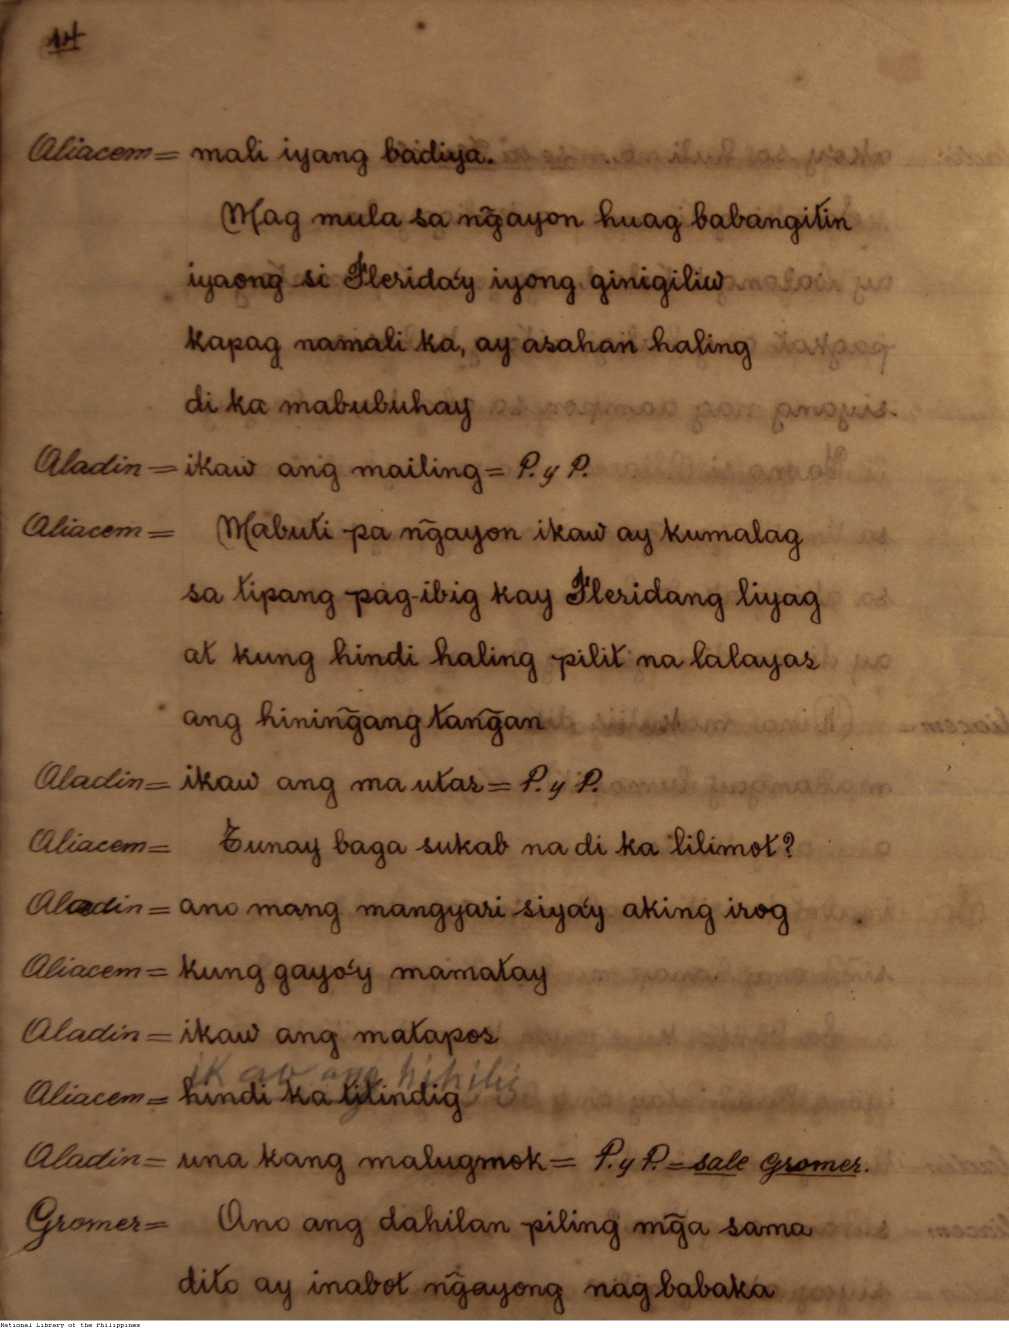 14
Aliacem = mali iyang badiya.
Mag mula sa ng̃ayon huag babangitin
iyaong si Flerida'y iyong ginigiliw
kapag namali ka, ay asahan haling
di ka mabubuhay
Aladin = ikaw ang mailing = P. y P.
Aliacem = Mabuti pa ng̃ayon ikaw ay kumalag
sa tipang pag-ibig kay Fleridang liyag
at kung hindi haling pilit na lalayas
ang hining̃ang tang̃an
Aladin = ikaw ang ma utas = P. y P.
Aliacem = Tunay baga sukab na di ka lilimot?
Aladin = ano mang mangyari siya'y aking irog
Aliacem = kung gayo'y mamatay
Aladin = ikaw ang matapos
ikaw ang
Aliacem = hindi ka titindig
Aladin = una kang malugmok = P. y P. = sale Gromer.
Gromer = Ano ang dahilan piling mg̃a sama
dito ay inabot ng̃ayong nag babaka
National Library of the Philippines